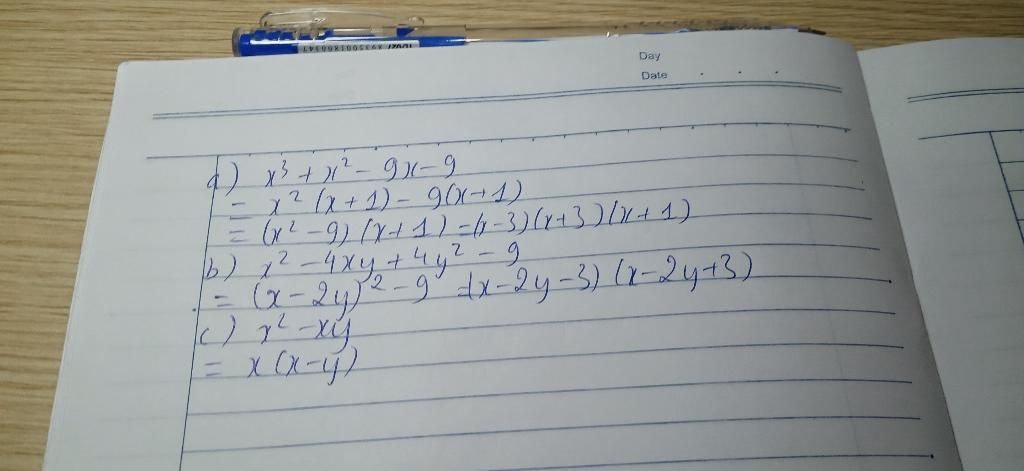 8935001800347
Day
Date . . .
a) x³ + x² - 9x - 9
= x² (x + 1) - 9(x + 1)
= (x² - 9) (x + 1) = (x - 3)(x + 3)(x + 1)
b) x² - 4xy + 4y² - 9
= (x - 2y)² - 9 = (x - 2y - 3) (x - 2y + 3)
c) x² - xy
= x (x - y)